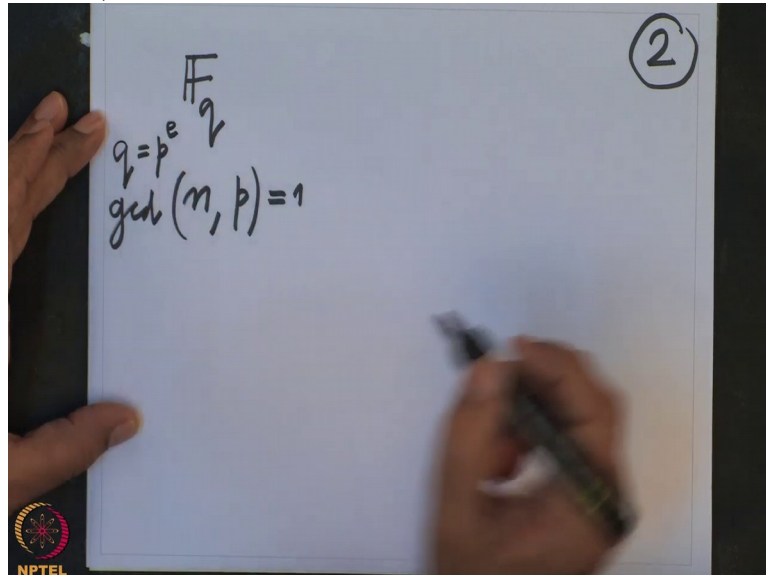 2
𝔽_q
q = p^e
gcd (n, p) = 1
NPTEL